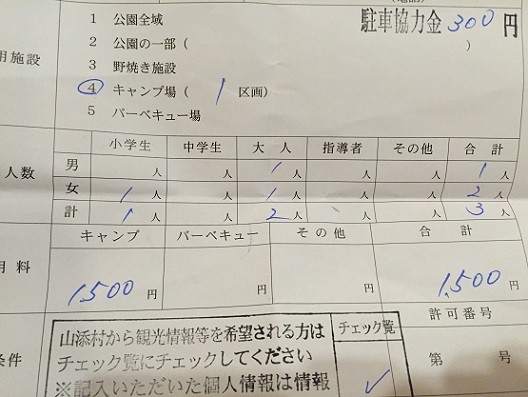 駐車協力金300円
1 公園全域
2 公園の一部( )
用施設 3 野焼き施設
④ キャンプ場( 1 区画)
5 バーベキュー場
小学生 中学生 大人 指導者 その他 合計
人数 男 人 人 1人 人 人 1人
女 1人 人 1人 人 人 2人
計 1人 人 2人 人 人 3人
キャンプ バーベキュー その他 合計
用料 1,500円 円 円 1,500円
山添村から観光情報等を希望される方は チェック覧 許可番号
条件 チェック覧にチェックしてください ✓ 第 号
※記入いただいた個人情報は情報